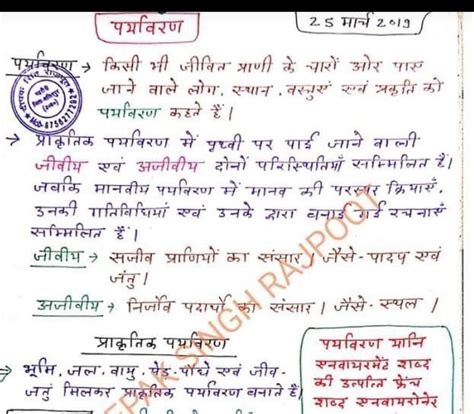 पर्यावरण
25 मार्च 2019
पर्यावरण → किसी भी जीवित प्राणी के चारों ओर पास
जाने वाले लोग, स्थान, वस्तुएं एवं प्रकृति को
पर्यावरण कहते हैं।
→ प्राकृतिक पर्यावरण में पृथ्वी पर पाई जाने वाली
जीवीय एवं अजीवीय दोनों परिस्थितियाँ सम्मिलित है।
जबकि मानवीय पर्यावरण में मानव की परस्पर क्रियाएं,
उनकी गतिविधियां एवं उनके द्वारा बनाई गई रचनाएँ
सम्मिलित हैं।
जीवीय → सजीव प्राणियों का संसार। जैसे- पादप एवं
जंतु।
अजीवीय → निर्जीव पदार्थों का संसार। जैसे- स्थल।
प्राकृतिक पर्यावरण
→ भूमि, जल, वायु, पेड़-पौधे एवं जीव-
जंतु मिलकर प्राकृतिक पर्यावरण बनाते हैं।
पर्यावरण यानि
एनवायरमेंट शब्द
की उत्पत्ति फ्रेंच
शब्द एनवायरोनेर
DEEPAK SINGH RAJPOOT